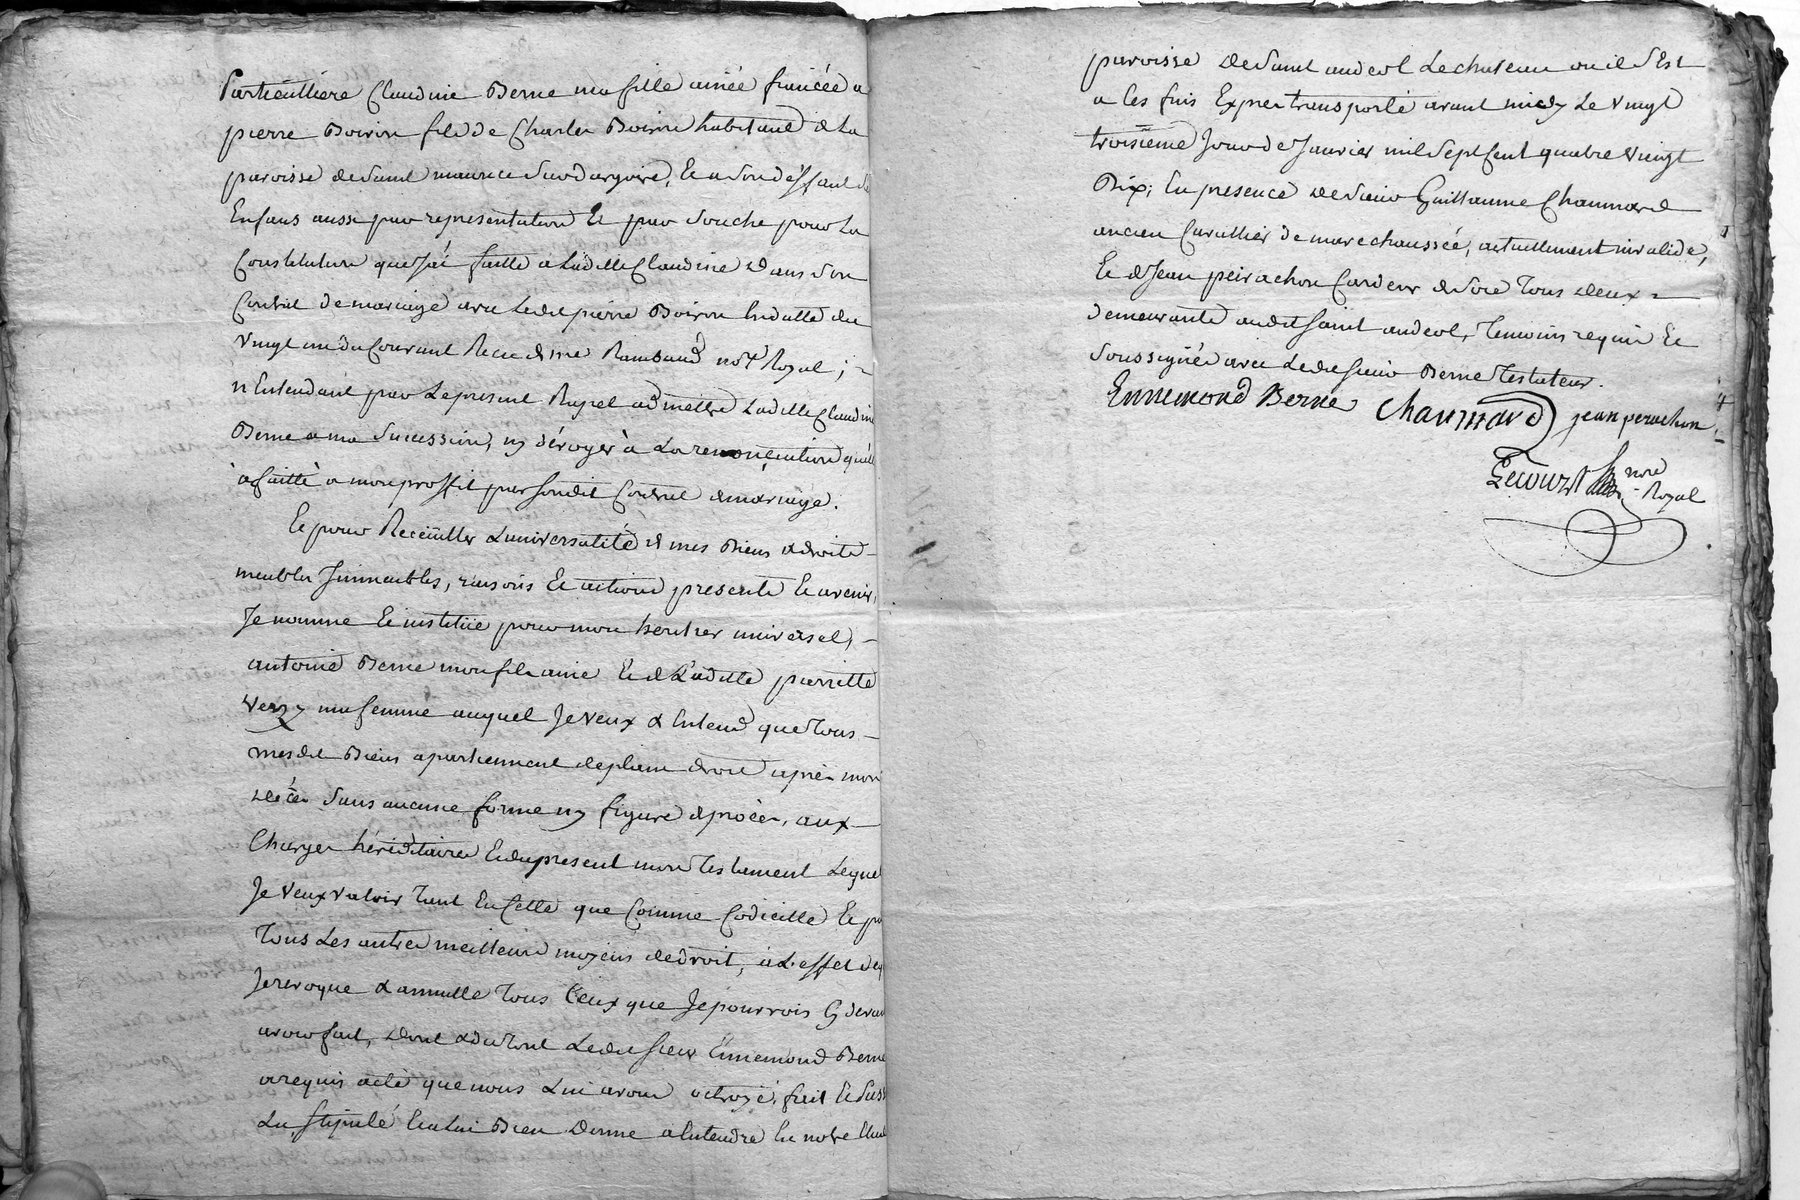 Particulliere Claudine Berne ma fille ainée fiancée a
pierre Boiron fils de Charles Boiron habitant de La
paroisse de Saint maurice Sur dargoire, Et a Son deffaut Ses
Enfans aussi par representation Et par Souche pour La
Constitution que J'ai faitte a Laditte Claudine Dans Son
Contrat de mariage avec Ledit pierre Boiron En datte du
vingt un du Courant Recu de me Rambaud not.e Royal ;
n'Entendant par Le present Rapel admettre Laditte Claudine
Berne a ma Sucession, ny déroger à La renonciation qu'elle
à faitte à mon proffit par Sondit Contrat de mariage.
Et pour Recëuillir L'universalité de mes Biens & droits
meubles Immeubles, raisons Et actions presents Et avenir,
Je nomme Et institüe pour mon heritier universel,
antoine Berne mon fils ainé Et de Laditte pierrette
Verzy ma femme auquel Je veux & Entend que Tous
mesdit Biens apartiennent de plain droit après mon
Décès Sans aucune forme ny figure de procès, aux
Charges héréditaires Et du present mon Testament Lequel
Je veux valoir Tant En Cette que Comme Codicille Et par
Tous Les autres meilleurs moyens de droit, à L'effet de quoi
Je revoque & annulle Tous Ceux que Je pourrois Cy devant
avoir fait, Dont & du Tout Ledit Sieur Ennemond Berne
a requis acte que nous Lui avons octroyé, fait Et passé
Lu, Stipulé Et a Lui Bien Donné a Entendre En notre Etude
paroisse de Saint andeol Le chateau ou il S'Est
a Ces fins Exprès transporté avant midy Le vingt
troisième Jour de Janvier mil Sept Cent quatre vingt
Dix; En presence de Sieur Guillaume Chaumard
ancien Cavallier de marechaussée, actuellement invalide,
Et de Jean peirachon Cardeur de Soie Tous deux
demeurants audit Saint andeol, Temoins requis Et
Soussignés avec Ledit Sieur Berne Testateur.
Ennemond Berne Chaumard jean perachon
Lecourt nore
Royal